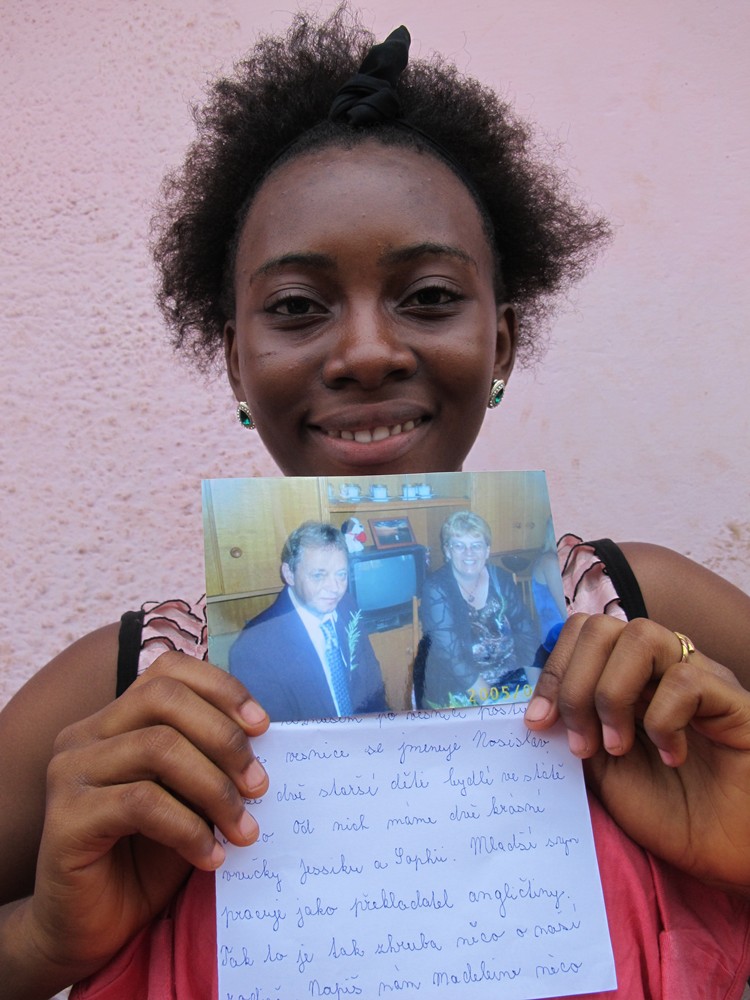 2005/0
po vesnici
vesnice se jmenuje Nosislav
dvě starší děti bydlí ve státě
Od nich máme dvě krásné
vnučky Jessiku a Sophii. Mladší syn
pracuje jako překladatel angličtiny.
Tak to je tak zhruba něco o naší
Napiš nám Madeleine něco